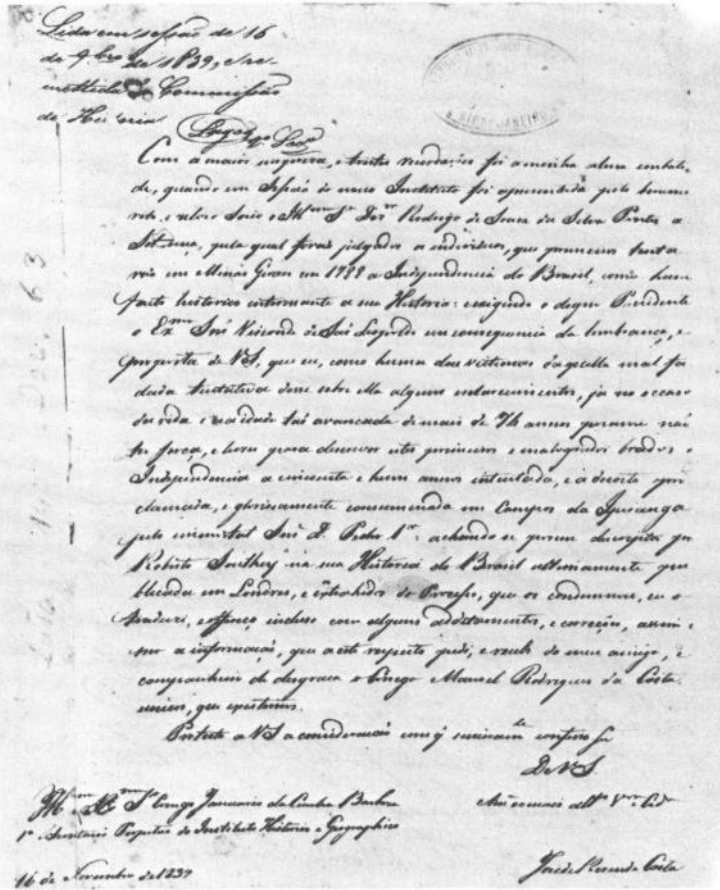 Lida em sessão de 16
de 9bro de 1839, e re-
mettida á Commissão
de Historia
Com a maior , e tristes recordações foi a minha alma combati-
da, quando em Sessão de nosso Instituto foi apresentada pelo beneme-
rito, e nobre Socio o Illmo Sr Dor Rodrigo de Souza da Silva Pontes a
Sentença, pela qual forão julgados os individuos, que primeiros tenta-
rão em Minas Geraes em 1788 a Independencia do Brasil, como hum
facto historico interessante a sua Historia: exigindo o digno Presidente
o Exmo Snr Visconde de São Leopoldo em consequencia da lembrança, e
proposta de VS, que eu, como huma das victimas d'aquella mal fa-
dada tentativa desse sobre ella alguns esclarecimentos, já no occaso
da vida e na idade tão avançada de mais de 74 annos
força, e para estes primeiros e malogrados brados d
Independencia a cincoenta e hum annos , e a pro
clamada, e gloriosamente consummada em Campos do Ypiranga
pelo immortal Snr D. Pedro 1º: achando-se porem descripta por
Roberto Southey na sua Historia do Brasil ultimamente pu
blicada em Londres, e extrahida do Processo, que os condemnou, eu o
traduzi, e offereço incluso com alguns additamentos, e correção, assim c
mo a informação, que a este respeito pedi, e recebi do meu amigo, e
companheiro de desgraça o Conego Manoel Rodrigues da Costa
unicos, que existimos.
Protesto a VS a consideração com q
De VS.
Illmo Sr Conego Januario da Cunha Barbosa
1º Secretario Perpetuo do Instituto Historico e Geographico
16 de Novembro de 1839
José de Rezende Costa